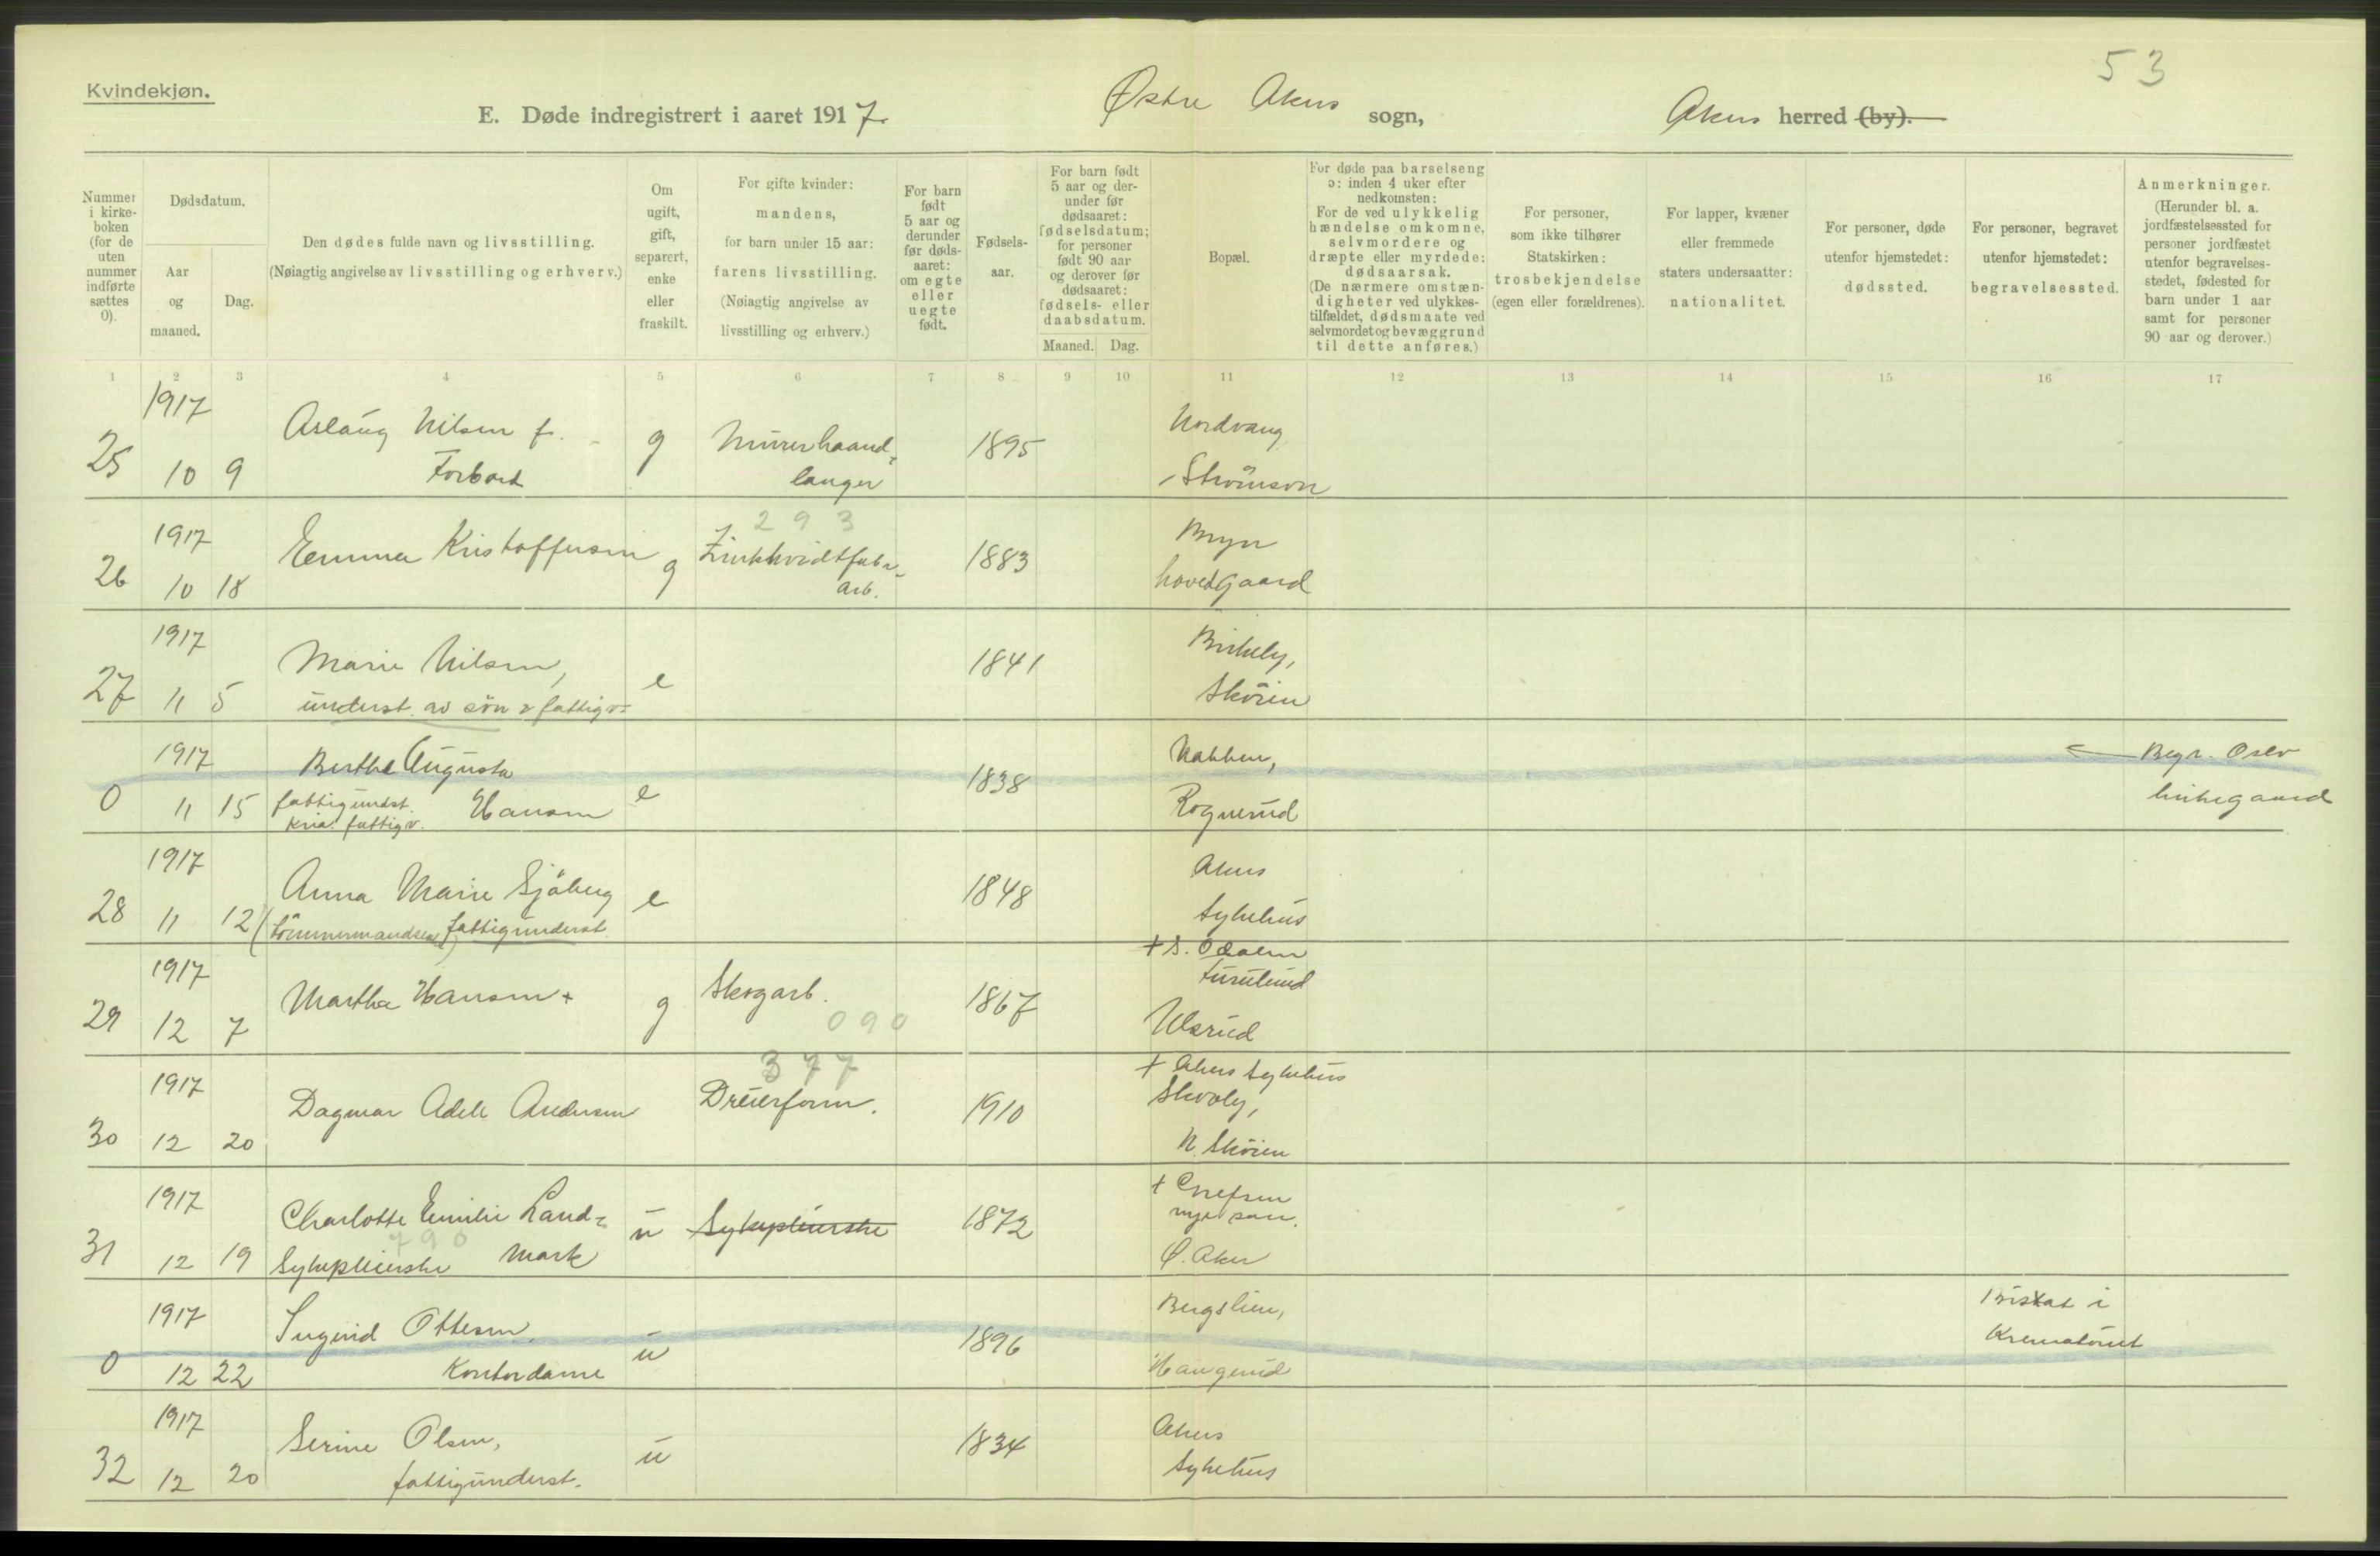 53
Kvindekjøn.
E. Døde indregistrert i aaret 1917. Østre Akers sogn, Akers herred (by).
Nummer i kirke- boken (for de uten nummer indførte sættes 0).
Dødsdatum.
Aar og maaned.
Dag.
Den dødes fulde navn og livsstilling.
(Nøiagtig angivelse av livsstilling og erhverv.)
Om ugift, gift, separert, enke eller fraskilt.
For gifte kvinder: mandens, for barn under 15 aar: farens livsstilling.
(Nøiagtig angivelse av livsstilling og erhverv.)
For barn født 5 aar og derunder før døds- aaret: om egte eller uegte født.
Fødsels- aar.
For barn født 5 aar og der- under før dødsaaret: fødselsdatum; for personer født 90 aar og derover før dødsaaret: fødsels- eller daabsdatum.
Maaned. Dag.
Bopæl.
For døde paa barselseng ɔ: inden 4 uker efter nedkomsten:
For de ved ulykkelig hændelse omkomne, selvmordere og dræpte eller myrdede: dødsaarsak.
(De nærmere omstæn- digheter ved ulykkes- tilfældet, dødsmaate ved selvmordet og bevæggrund til dette anføres.)
For personer, som ikke tilhører Statskirken: trosbekjendelse (egen eller forældrenes).
For lapper, kvæner eller fremmede staters undersaatter: nationalitet.
For personer, døde utenfor hjemstedet: dødssted.
For personer, begravet utenfor hjemstedet: begravelsessted.
Anmerkninger.
(Herunder bl. a. jordfæstelsessted for personer jordfæstet utenfor begravelses- stedet, fødested for barn under 1 aar samt for personer 90 aar og derover.)
1 2 3 4 5 6 7 8 9 10 11 12 13 14 15 16 17
1917
25 10 9 Aslaug Nilsen f. g Murerhaand- 1895 Nordvang
Forbord langer Strømsvn
293
1917
26 10 18 Emma Kristoffersen g Zinkhvidtfabr- 1883 Bryn
arb. hovedgaard
1917
27 11 5 Marie Nilsen, e 1841 Birkely,
underst. av søn & fattigv. Skøien
1917
0 11 15 Berthe Augusta e 1838 Nabben, Begr. Oslo
fattigundst. Hansen Rognerud kirkegaard
Kria. fattigv.
1917
28 11 12 Anna Marie Sjøberg e 1848 Akers
(tømmermandsenke) fattigunderst. sykehus
+ S. Odalen
1917
29 12 7 Marthe Hansen + g Skogarb. 1867
090 Ulsrud
377
+ Akers sykehus
1917
30 12 20 Dagmar Adele Andersen Dreierform. 1910 Skoly,
N. Skøien
1917
31 12 19 Charlotte Emilie Land- u Sykepleierske 1872 + Grefsen
790 nye san.
Sykepleierske mark Ø. Aker
1917
0 12 22 Ingerid Ottesen u 1896 Bergslien, Bisat i
Kontordame Haugerud Krematoriet
1917
32 12 20 Serine Olsen, u 1834 Akers
fattigunderst. sykehus